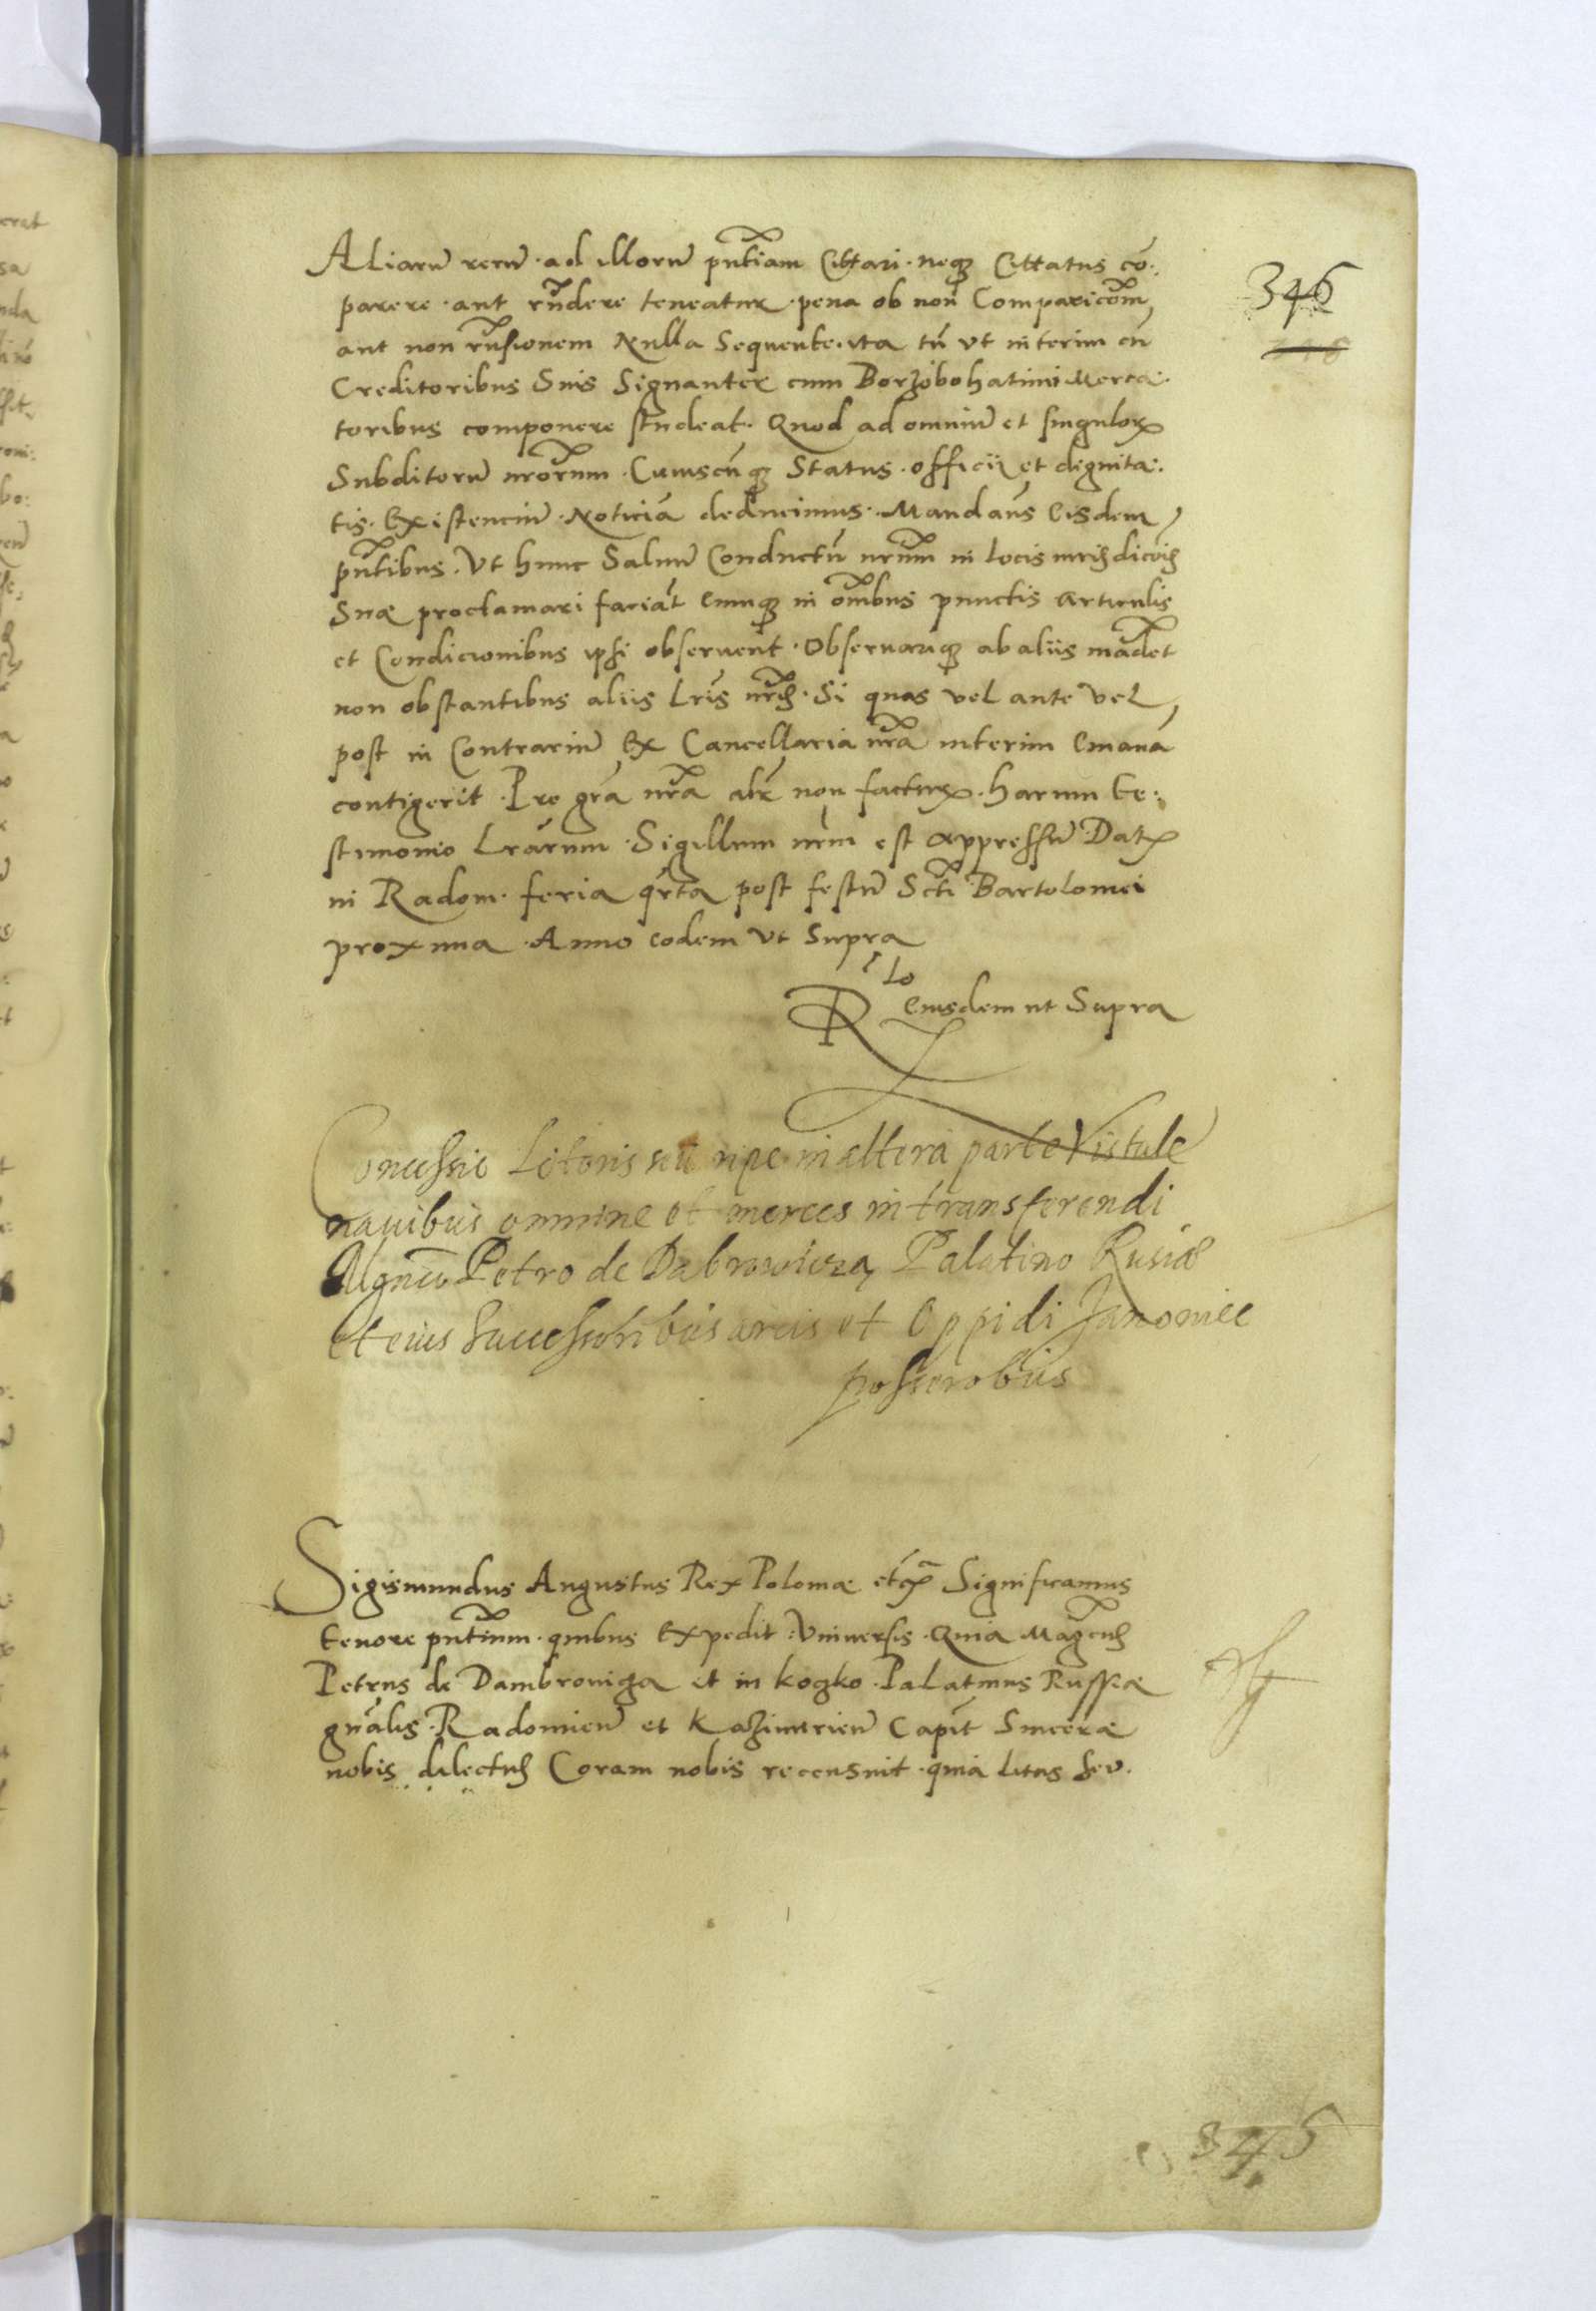 Aliarũ rerũ · ad illorũ pñtiam Cittari · neq3 Cittatus cõ:
parere · aut rñdere teneatur · pena ob non Comparicõm
aut non rñsionem Nulla Sequente · ita tñ vt interim cũ
Creditoribus Suis Signanter cum Borzobohatimi Merca:
toribus componere studeat · Quod ad omniũ et singulor
Subditorũ nrorum · Cuiuscũq3 Status · officii et dignita:
tis · Existenciũ · Noticiã deducimus · Mandañs Eisdem
pñtibus · Vt hunc Saluũ Conductũ nrum in locis iurisdicõis
Suæ proclamari faciãt eumq3 in oĩbus punctis Articulis
et Condicionibus ipsi obseruent · Obseruariq3 ab aliis mãdet
non obstantibus aliis Lris nris · Si quas vel ante vel
post in Contrariũ Ex Cancellaria nra interim Emanã
contigerit · Pro grã nra alr non factur · harum te:
stimonio Lrarum · Sigillum nrm est appressũ Dat
in Radom · feria qrta post festũ Scti Bartolomei
proxima · Anno eodem vt Supra
R lo Eiusdem ut Supra
346
Concessio Litoris seu ripe in altera parte Vistule
nauibus omnine et merces in transferendi
Mgnco Petro de Dabrowicza Palatino Rusiæ
et eius Successoribus arcis et Oppidi Janowiec
possesrobus
Sigismundus Augustus Rex Poloniæ etc Significamus
tenore pñtium · quibus Expedit · Vniuersis · Quia Magcus
Petrus de Dambroviga et in kogko · Palatinus Russiæ
gnãlis · Radomieñ et Kazimirieñ Capit Sincere
nobis dilectus Coram nobis recensuit · quia litus seu ·
345